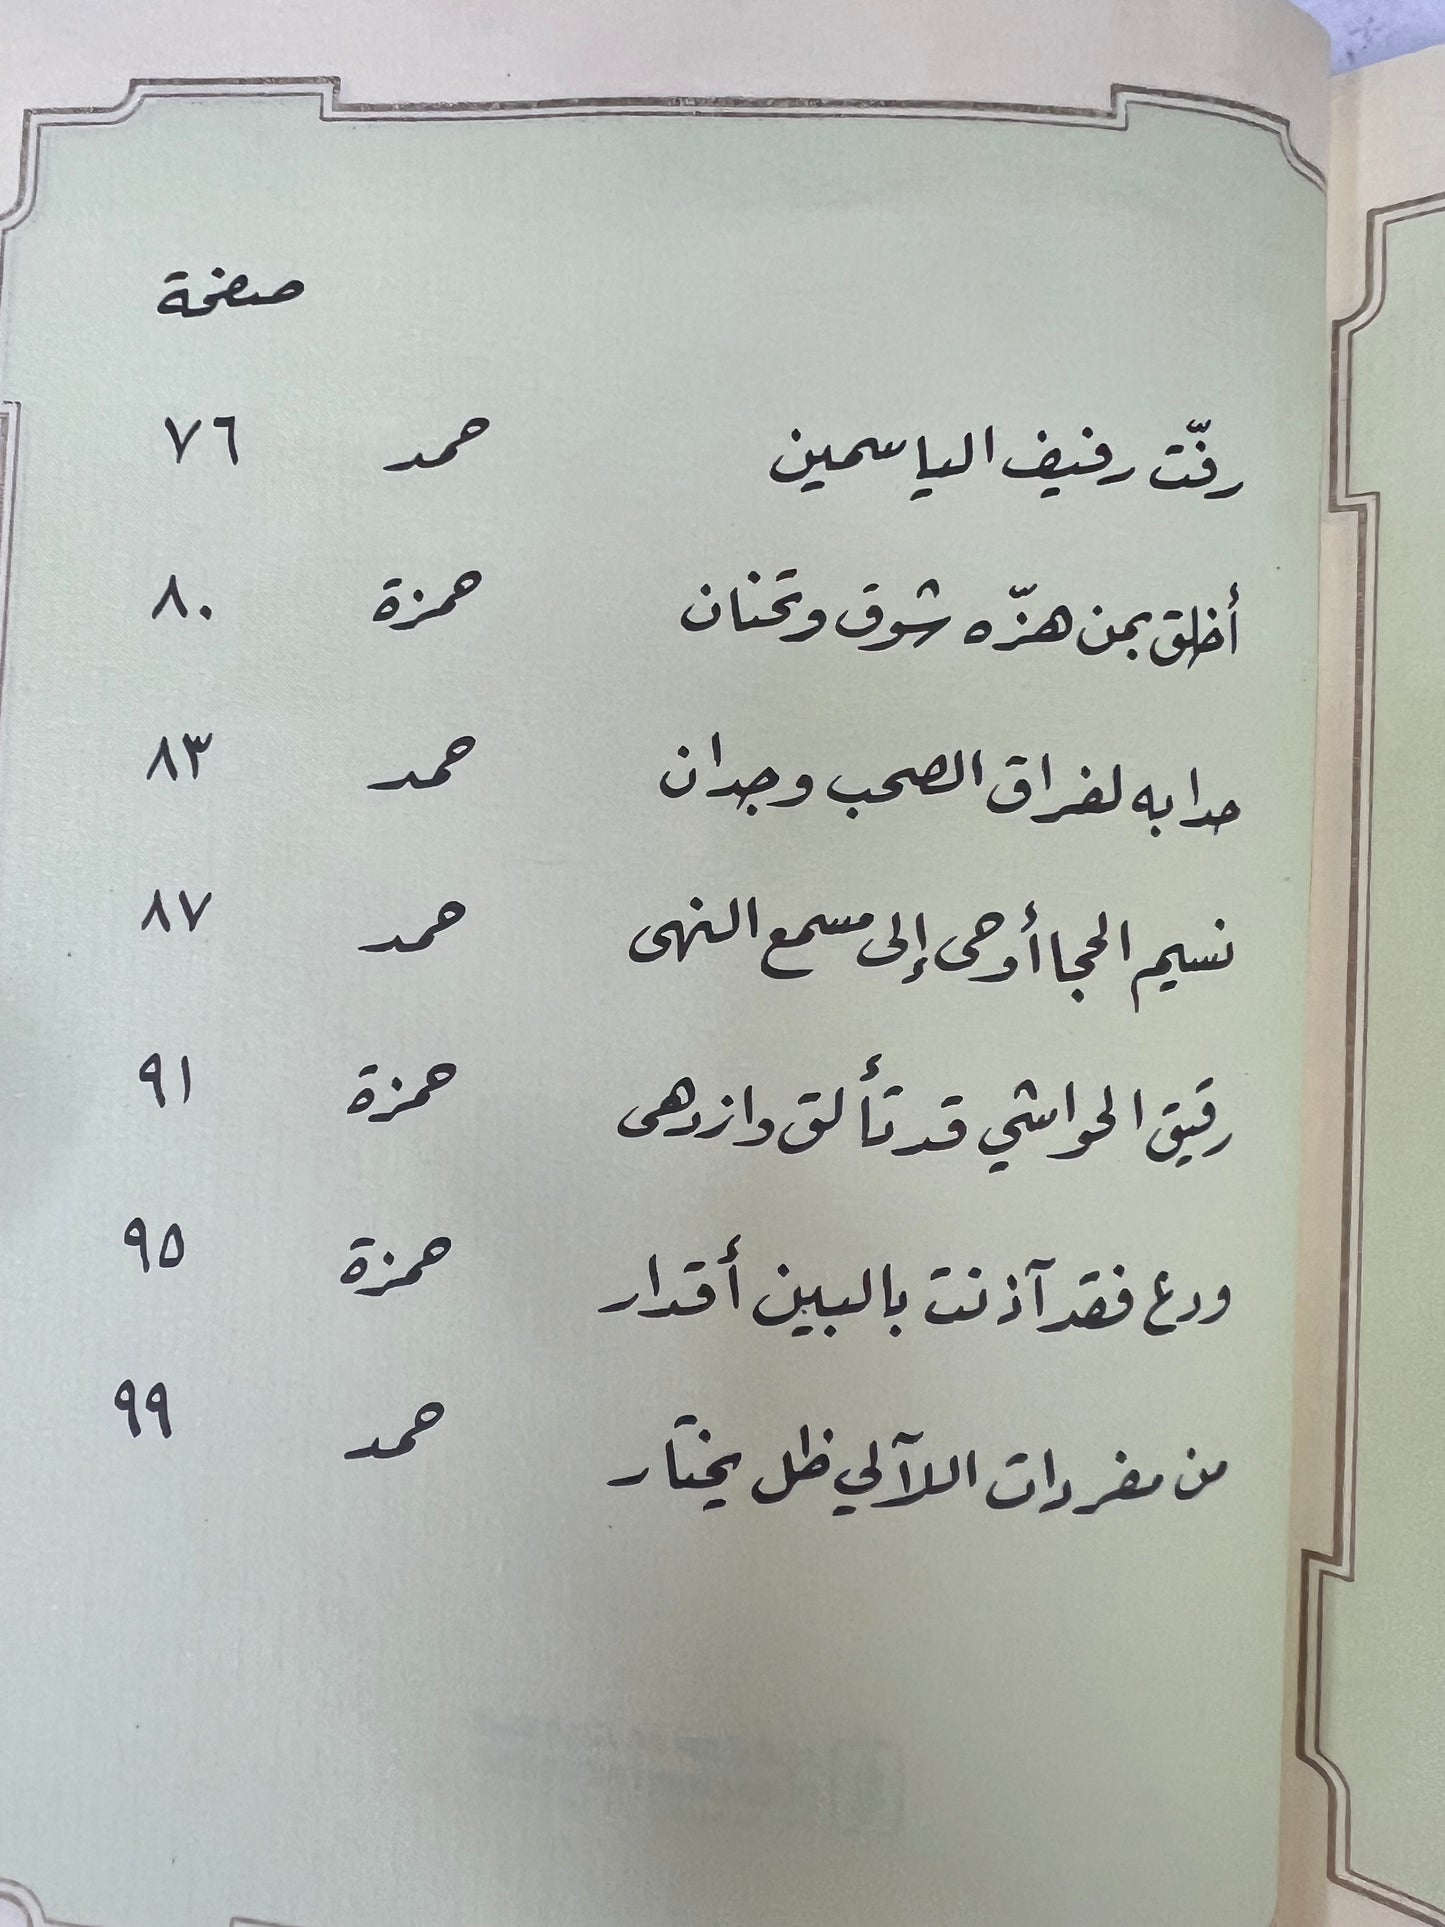 صفحة
رفّت رفيف الياسمين حمد ٧٦
أخلق بمن هزّه شوق وتحنان حمزة ٨٠
حدا به لفراق الصحب وجدان حمد ٨٣
نسيم الحجا أوحى إلى مسمع النهى حمد ٨٧
رقيق الحواشي قد تألق وازدهى حمزة ٩١
ودع فقد آذنت بالبين أقدار حمزة ٩٥
من مفردات اللآلي ظل يختار حمد ٩٩